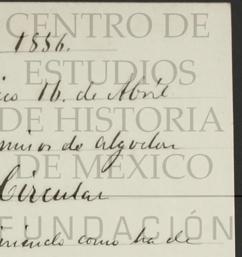 CENTRO DE
1886.
ESTUDIOS
ico 16. de Abril
DE HISTORIA
misos de algodon
DE MÉXICO
Circular
FUNDACIÓN
como ha de